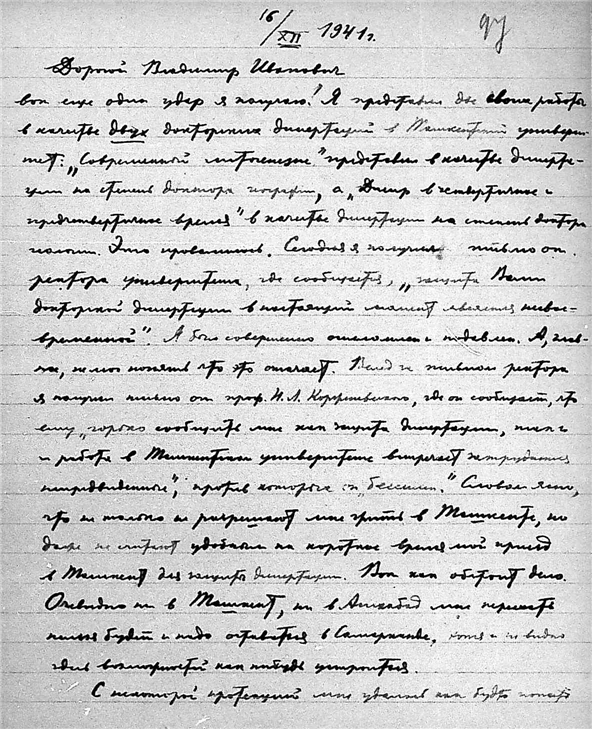 16/XII 1941 г.
97
Дорогой Владимир Иванович
вот еще один удар я получаю! Я представил две своих работы
в качестве двух докторских диссертаций в Ташкентский универси-
тет: „Современной литогенезис" представил в качестве диссерта-
ции на степень доктора географии, а „Днепр в четвертичное и
предчетвертичное время" в качестве диссертации на степень доктора
геологии. Это провалилось. Сегодня я получил письмо от
ректора университета, где сообщается, „защита Вами
докторской диссертации в настоящий момент является несвое-
временной". Я был совершенно ошеломлен и подавлен. А, глав-
ное, не мог понять что это означает. Вслед за письмом ректора
я получил письмо от проф. Н. Л. Корженевского, где он сообщает, что
ему „горько сообщить мне как защита диссертации, так и
и работа в Ташкентском университете встречает затруднения
непредвиденные", против которых он „бессилен." Словом ясно,
что не только не разрешают мне жить в Ташкенте, но
даже не считают удобным на короткое время мой приезд
в Ташкент для защиты диссертации. Вот как обстоит дело.
Очевидно ни в Ташкент, ни в Ашхабад мне переехать
нельзя будет и надо оставаться в Самарканде, хотя и не видно
здесь возможностей как нибудь устроиться.
С некоторой протекцией мне удалось как будто